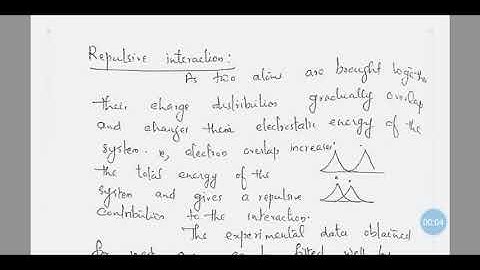 Repulsive interaction:
As two atom are brought together
their charge distribution gradually overlap
and changes their electrostatic energy of the
system. electron overlap increase
the total energy of the
system and gives a repulsive
contribution to the interaction.
The experimental data obtained
for well by
00:04